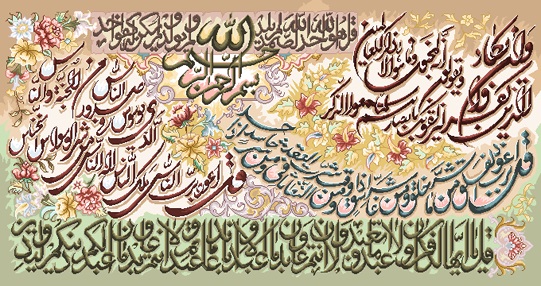 قل هو الله احد الله الصمد لم يلد ولم يولد ولم يكن له كفوا احد
بسم الله الرحمن الرحيم
وان يكاد الذين كفروا ليزلقونك بابصارهم لما سمعوا الذكر ويقولون انه لمجنون وما هو الا ذكر للعالمين
قل اعوذ برب الفلق من شر ما خلق ومن شر غاسق اذا وقب ومن شر النفاثات في العقد ومن شر حاسد اذا حسد
قل اعوذ برب الناس ملك الناس اله الناس من شر الوسواس الخناس الذي يوسوس في صدور الناس من الجنة والناس
قل يا ايها الكافرون لا اعبد ما تعبدون ولا انتم عابدون ما اعبد ولا انا عابد ما عبدتم ولا انتم عابدون ما اعبد لكم دينكم ولي دين